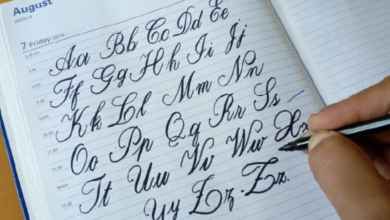 August
7 Friday
Aa Bb Cc Dd Ee
Ff Gg Hh Ii Jj
Kk Ll Mm Nn
Oo Pp Qq Rr Ss
Tt Uu Vv Ww Xx
Yy Zz . Zz.